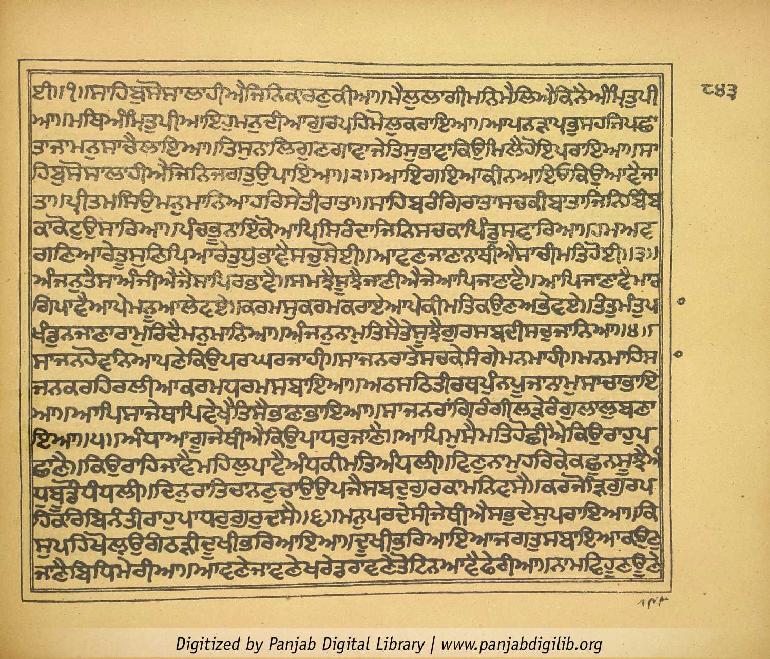 ੮੪੩
ਈ॥੧॥ਸਾਹਿਬੁਸੋਸਾਲਾਹੀਐਜਿਨਿਕਾਰਣੁਕੀਆ॥ਮੈਲੁਲਾਗੀਮਨਿਮੈਲਿਐਕਿਨੈਅੰਮ੍ਰਿਤੁਪੀ
ਆ॥ਮਥਿਅੰਮ੍ਰਿਤੁਪੀਆਇਹੁਮਨੁਦੀਆਗੁਰਪਹਿਮੋਲੁਕਰਾਇਆ॥ਆਪਨੜਾਪ੍ਰਭੁਸਹਜਿਪਛਾ
ਤਾਜਾਮਨੁਸਾਚੈਲਾਇਆ॥ਤਿਸੁਨਾਲਿਗੁਣਗਾਵਾਜੇਤਿਸੁਭਾਵਾਕਿਉਮਿਲੈਹੋਇਪਰਾਇਆ॥ਸਾ
ਹਿਬੁਸੋਸਾਲਾਹੀਐਜਿਨਿਜਗਤੁਉਪਾਇਆ॥੨॥ਆਇਗਇਆਕੀਨਆਇਓਕਿਉਆਵੈਜਾ
ਤਾ॥ਪ੍ਰੀਤਮਸਿਉਮਨੁਮਾਨਿਆਹਰਿਸੇਤੀਰਾਤਾ॥ਸਾਹਿਬਰੰਗਿਰਾਤਾਸਚਕੀਬਾਤਾਜਿਨਿਬਿੰਬ
ਕਾਕੋਟੁਉਸਾਰਿਆ॥ਪੰਚਭੂਨਾਇਕੋਆਪਿਸਿਰੰਦਾਜਿਨਿਸਚਕਾਪਿੰਡੁਸਵਾਰਿਆ॥ਹਮਅਵ
ਗਣਿਆਰੇਤੂਸੁਣਿਪਿਆਰੇਤੁਧੁਭਾਵੈਸਚੁਸੋਈ॥ਆਵਣਜਾਣਾਨਾਥੀਐਸਾਚੀਮਤਿਹੋਈ॥੩॥
ਅੰਜਨੁਤੈਸਾਅੰਜੀਐਜੈਸਾਪਿਰਭਾਵੈ॥ਸਮਝੈਸੂਝੈਜਾਣੀਐਜੇਆਪਿਜਾਣਾਵੈ॥ਆਪਿਜਾਣਾਵੈਮਾਰ
ਗਿਪਾਵੈਆਪੇਮਨੂਆਲੇਵਏ॥ਕਰਮਸੁਕਰਮਕਰਾਏਆਪੇਕੀਮਤਿਕਉਣਅਭੇਵਏ॥ਤੰਤੁਮੰਤੁਪ
ਖੰਡੁਨਜਾਣਾਰਾਮੁਰਿਦੈਮਨੁਮਾਨਿਆ॥ਅੰਜਨੁਨਾਮੁਤਿਸੈਤੇਸੂਝੈਗੁਰਸਬਦੀਸਚੁਜਾਨਿਆ॥੪॥
ਸਾਜਨਹੋਵਨਿਆਪਣੇਕਿਉਪਰਘਰਜਾਹੀ॥ਸਾਜਨਰਾਤੇਸਚਕੇਸੰਗੇਮਨਮਾਹੀ॥ਮਨਮਾਹਿਸਾ
ਜਨਕਰਹਿਰਲੀਆਕਰਮਧਰਮਸਬਾਇਆ॥ਅਠਸਠਿਤੀਰਥਪੁੰਨਪੂਜਾਨਾਮੁਸਾਚਾਭਾਇ
ਆ॥ਆਪਿਸਾਜੇਥਾਪਿਵੇਖੈਤਿਸੈਭਾਣਾਭਾਇਆ॥ਸਾਜਨਰਾਂਗਿਰੰਗੀਲੜੇਰੰਗੁਲਾਲੁਬਣਾ
ਇਆ॥੫॥ਅੰਧਾਆਗੂਜੇਥੀਐਕਿਉਪਾਧਰੁਜਾਣੈ॥ਆਪਿਮੁਸੈਮਤਿਹੋਛੀਐਕਿਉਰਾਹੁਪ
ਛਾਣੈ॥ਕਿਉਰਾਹਿਜਾਵੈਮਹਲੁਪਾਵੈਅੰਧਕੀਮਤਿਅੰਧਲੀ॥ਵਿਣੁਨਾਮਹਰਿਕੇਕਛੁਨਸੂਝੈਅੰ
ਧੁਬੂਡੌਧੰਧਲੀ॥ਦਿਨੁਰਾਤਿਚਾਨਣੁਚਾਉਉਪਜੈਸਬਦੁਗੁਰਕਾਮਨਿਵਸੈ॥ਕਰਜੋੜਿਗੁਰਪ
ਹਿਕਰਿਬਿਨੰਤੀਰਾਹੁਪਾਧਰੁਗੁਰੁਦਸੈ॥੬॥ਮਨੁਪਰਦੇਸੀਜੇਥੀਐਸਭੁਦੇਸੁਪਰਾਇਆ॥ਕਿ
ਸੁਪਹਿਖੋਲ੍ਹਉਗੰਠੜੀਦੂਖੀਭਰਿਆਇਆ॥ਦੂਖੀਭਰਿਆਇਆਜਗਤੁਸਬਾਇਆਕਉਣੁ
ਜਾਣੈਬਿਧਿਮੇਰੀਆ॥ਆਵਣੇਜਾਵਣੇਖਰੇਡਰਾਵਣੇਤੋਟਿਨਆਵੈਫੇਰੀਆ॥ਨਾਮਵਿਹੂਣੇਊਣੇ
Digitized by Panjab Digital Library | www.panjabdigilib.org